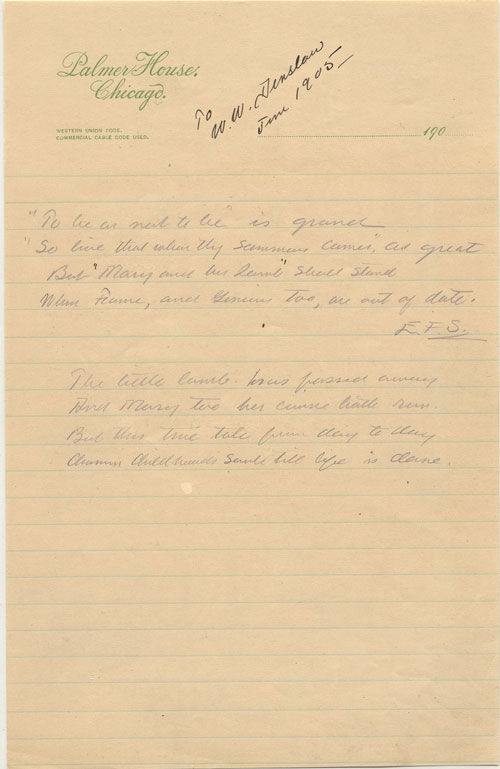 Palmer House,
Chicago.
WESTERN UNION CODE.
COMMERCIAL CABLE CODE USED.
To
W. W. Denslow
June 1905
190
"To be or not to be" is grand
"So live that when thy summons comes", as great
But "Mary and her Lamb" shall stand
When Fame, and Genius too, are out of date.
E.F.S.
The little lamb has passed away
And Mary too her course hath run.
But this true tale from day to day
Charms Childhoods Souls till life is done.